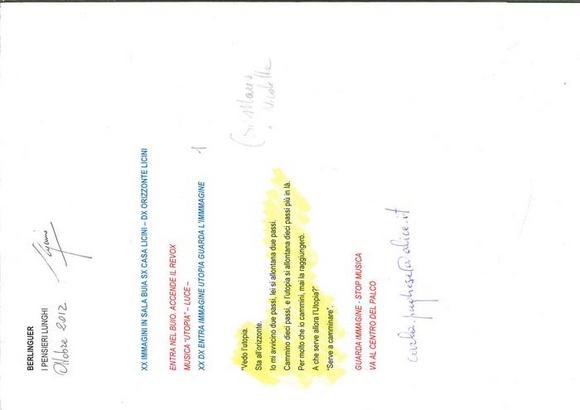 BERLINGUER
I PENSIERI LUNGHI
Ottobre 2012
XX IMMAGINI IN SALA BUIA SX CASA LICINI – DX ORIZZONTE LICINI
ENTRA NEL BUIO. ACCENDE IL REVOX
MUSICA "UTOPIA" – LUCE –
XX DX ENTRA IMMAGINE UTOPIA GUARDA L'IMMMAGINE
1
"Vedo l'utopia.
Sta all'orizzonte.
Io mi avvicino due passi, lei si allontana due passi.
Cammino dieci passi, e l'utopia si allontana dieci passi più in là.
Per molto che io cammini, mai la raggiungerò.
A che serve allora l'Utopia?"
"Serve a camminare".
GUARDA IMMAGINE - STOP MUSICA
VA AL CENTRO DEL PALCO